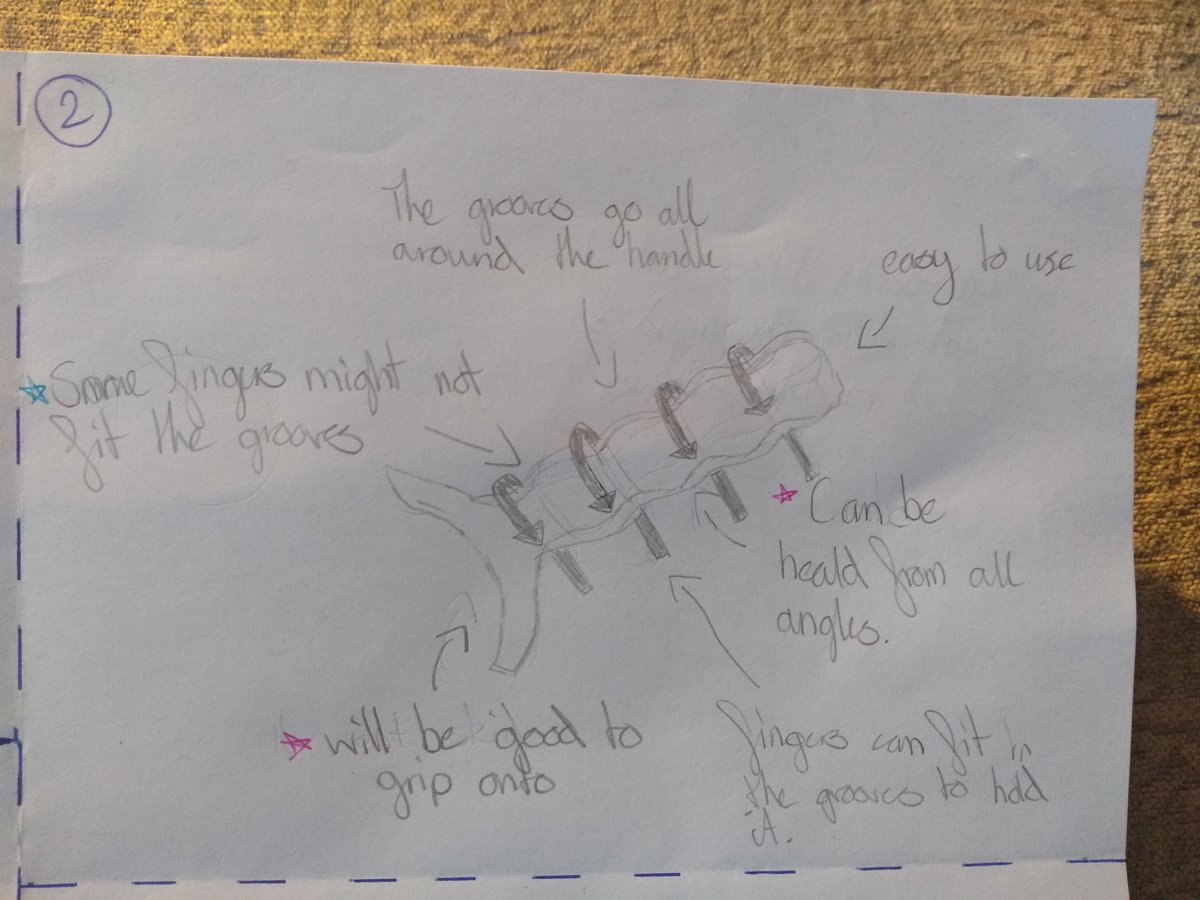 2
The grooves go all
around the handle
easy to use
Some fingers might not
fit the grooves
Can be
heald from all
angles.
will be good to
grip onto
fingers can fit in
the grooves to hold
it.